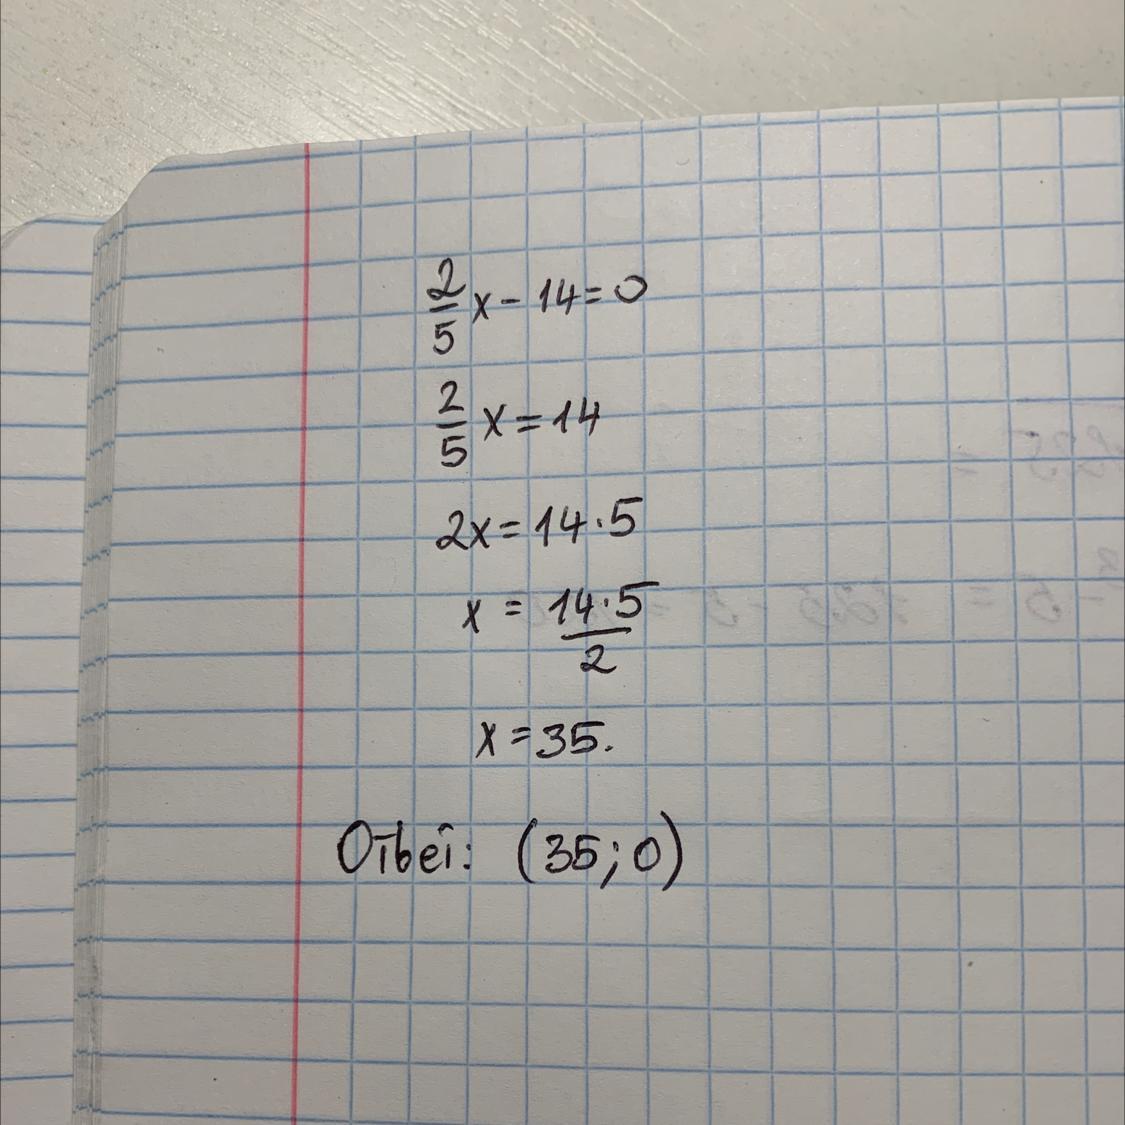 2/5 x - 14 = 0
2/5 x = 14
2x = 14 · 5
x = 14 · 5 / 2
x = 35.
Ответ: (35; 0)